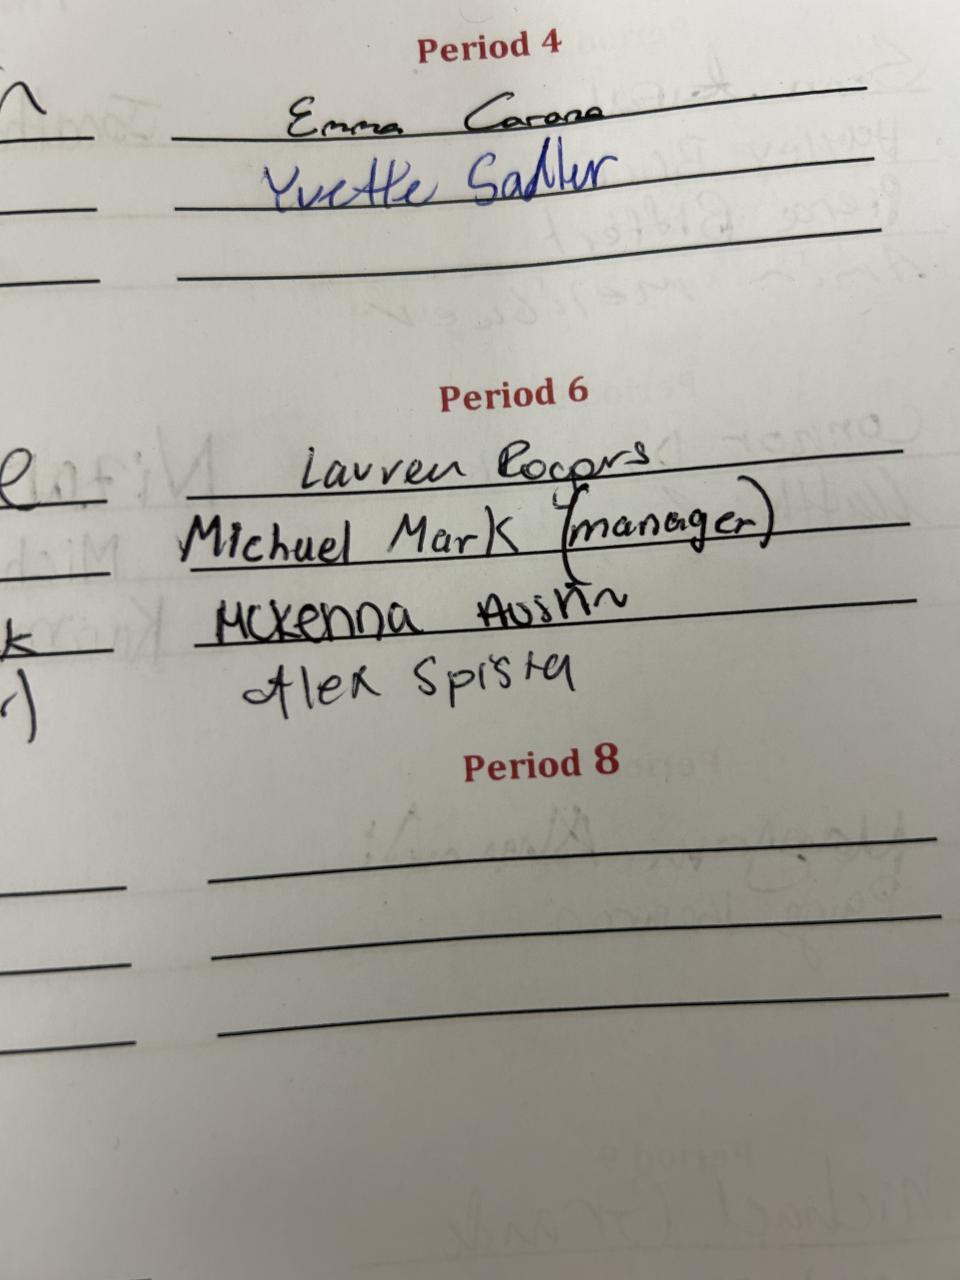 Period 4
Emma Carana
Yvette Sadler
Period 6
Lauren Rogers
Michael Mark (manager)
k
McKenna Austin
Alex Spista
Period 8